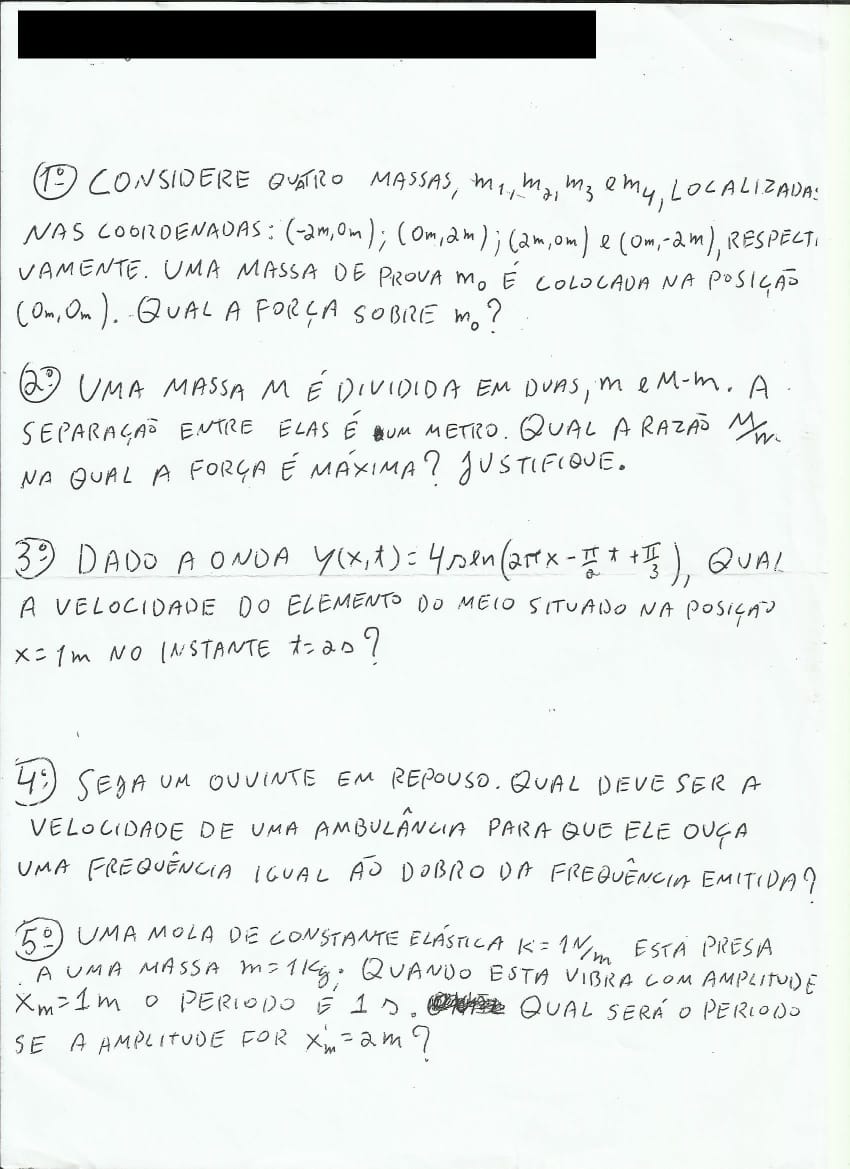 1º CONSIDERE QUATRO MASSAS, m1, m2, m3 e m4, LOCALIZADAS
NAS COORDENADAS: (-2m,0m); (0m,2m); (2m,0m) e (0m,-2m), RESPECTI
VAMENTE. UMA MASSA DE PROVA m0 É COLOCADA NA POSIÇÃO
(0m,0m). QUAL A FORÇA SOBRE m0?
2º UMA MASSA M É DIVIDIDA EM DUAS, m e M-m. A
SEPARAÇÃO ENTRE ELAS É UM METRO. QUAL A RAZÃO M/m
NA QUAL A FORÇA É MÁXIMA? JUSTIFIQUE.
3º DADO A ONDA Y(x,t)=4sen(2πx-π/2 t+π/3), QUAL
A VELOCIDADE DO ELEMENTO DO MEIO SITUADO NA POSIÇÃO
x=1m NO INSTANTE t=2s?
4º SEJA UM OUVINTE EM REPOUSO. QUAL DEVE SER A
VELOCIDADE DE UMA AMBULÂNCIA PARA QUE ELE OUÇA
UMA FREQUÊNCIA IGUAL ÃO DOBRO DA FREQUÊNCIA EMITIDA?
5º UMA MOLA DE CONSTANTE ELÁSTICA K=1N/m ESTÁ PRESA
A UMA MASSA m=1Kg. QUANDO ESTA VIBRA COM AMPLITUDE
Xm=1m O PERIODO É 1s. QUAL SERÁ O PERIODO
SE A AMPLITUDE FOR X'm=2m?